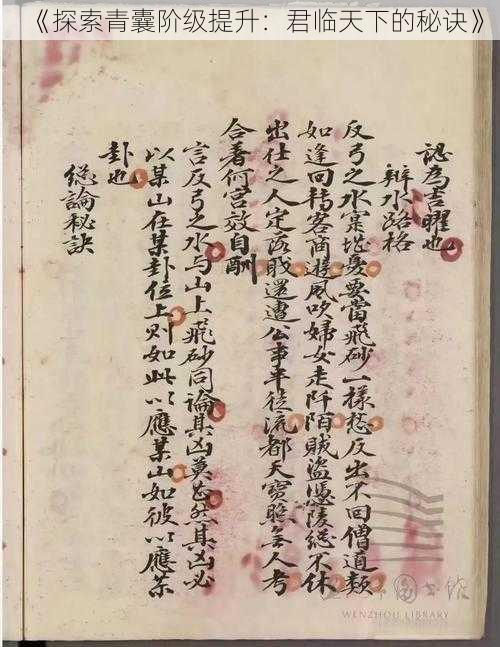 《探索青囊阶级提升：君临天下的秘诀》
認為吉曜也
辯水路格
反弓之水寔堪憂要當飛砂一樣愁反出不回僧道類
如逢回轉客商遊風吹婦女走阡陌賊盜憑陵總不休
出仕之人定落職還遭公事半徒流都天寶照無人考
合着何宮效自酬
言反弓之水与山上飛砂同論其凶莫甚然其凶必
以某山在某卦位上則如此以應某山如彼以應某
卦也
総論秘訣
WENZHOU LIBRARY